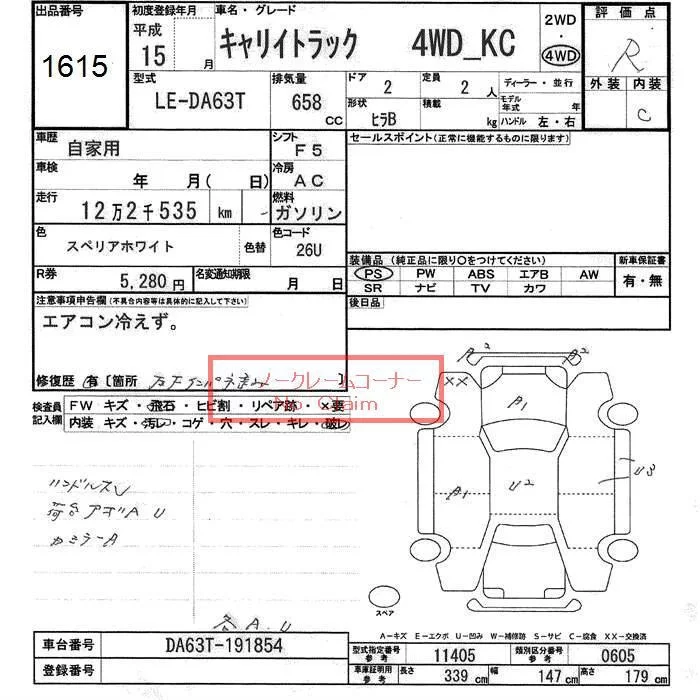 出品番号
1615
初度登録年月
平成
15 月
車名・グレード
キャリイトラック 4WD_KC
2WD
・
4WD
評価点
R
外装 内装
C
型式
LE-DA63T
排気量
658 CC
ドア
2
定員
2 人
形状
ヒラB
積載
kg
ディーラー・並行
モデル年式 年
ハンドル 左・右
車歴
自家用
シフト
F5
車検
年 月( 日)
冷房
AC
走行
12万2千535 km
燃料
ガソリン
色
スペリアホワイト
色替
色コード
26U
R券
5,280円
名変通知期限
月 日
セールスポイント(正常に機能するものに限ります)
装備品 (純正品に限り○をつけてください)
PS PW ABS エアB AW
SR ナビ TV カワ
新車保証書
有・無
後日品
注意事項申告欄(不具合内容等は具体的に記入して下さい)
エアコン冷えず。
修復歴 有〔箇所
〕
ノークレームコーナー
No Claim
検査員記入欄
FW キズ・飛石・ヒビ割・リペア跡・×要
内装 キズ・汚レ・コゲ・穴・スレ・キレ・破レ
ハンドルスレ
荷台アオリA U
A.U
XX
A2
A1
A1
U2
U3
スペア
A-キズ E-エクボ U-凹み W-補修跡 S-サビ C-腐食 XX-交換済
車台番号
DA63T-191854
登録番号
型式指定番号
参考
11405
類別区分番号
参考
0605
車庫証明用
参考
長さ 339 cm 幅 147 cm 高さ 179 cm